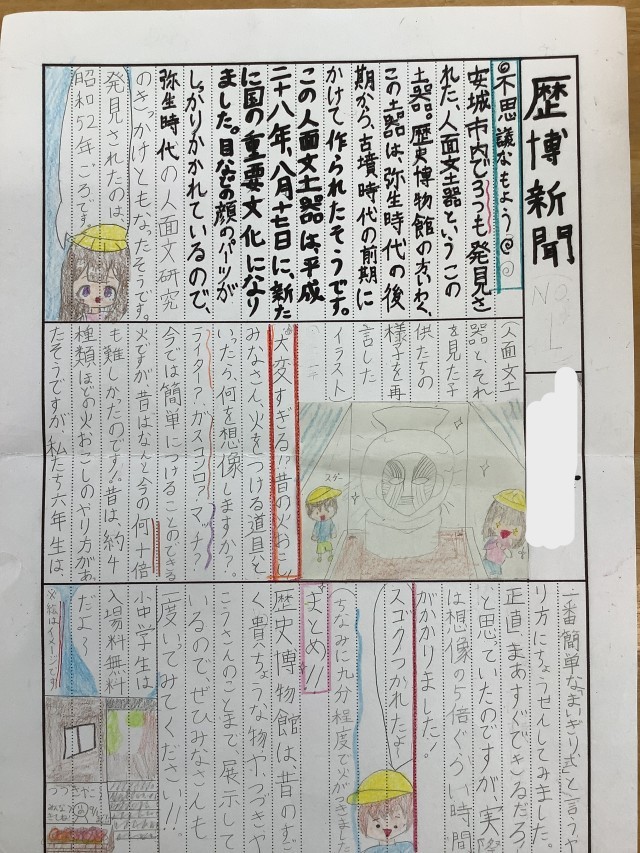 歴博新聞
NO.1
不思議なもよう
安城市内で3つも発見さ
れた、人面文土器というこの
土器。歴史博物館の方いわく、
この土器は、弥生時代の後
期から、古墳時代の前期に
かけて作られたそうです。
この人面文土器は、平成
二十八年、八月十七日に、新た
に国の重要文化になり
ました。目などの顔のパーツが
しっかりかかれているので、
弥生時代の人面文研究
のきっかけともなったそうです。
発見されたのは、
昭和52年ごろです
(人面文土
器と、それ
を見た子
供たちの
様子を再
言した
イラスト)
大変すぎる!?昔の火おこし
みなさん、火をつける道具と
いったら、何を想像しますか?
ライター?ガスコンロ?マッチ?
今では簡単につけることのできる
火ですが、昔はなんと今の何十倍
も難しかたのです!!昔は、約4
種類ほどの火おこしのやり方があ
たそうですが、私たち六年生は、
一番簡単な“まいぎり式”と言うや
り方にちょうせんしてみました。
正直、まあすぐできるだろ!
と思っていたのですが、実際
は想像の5倍ぐらい時間
がかかりました!
スゴクつかれたよ!
(ちなみに九分程度で火がつきました
まとめ!!
歴史博物館は、昔のすご
く貴ちょうな物や、つづきや
こうさんのことまで、展示して
いるので、ぜひみなさんも
一度いってみてください!!
小中学生は
入場料無料
だよ〜
※絵はイメージです